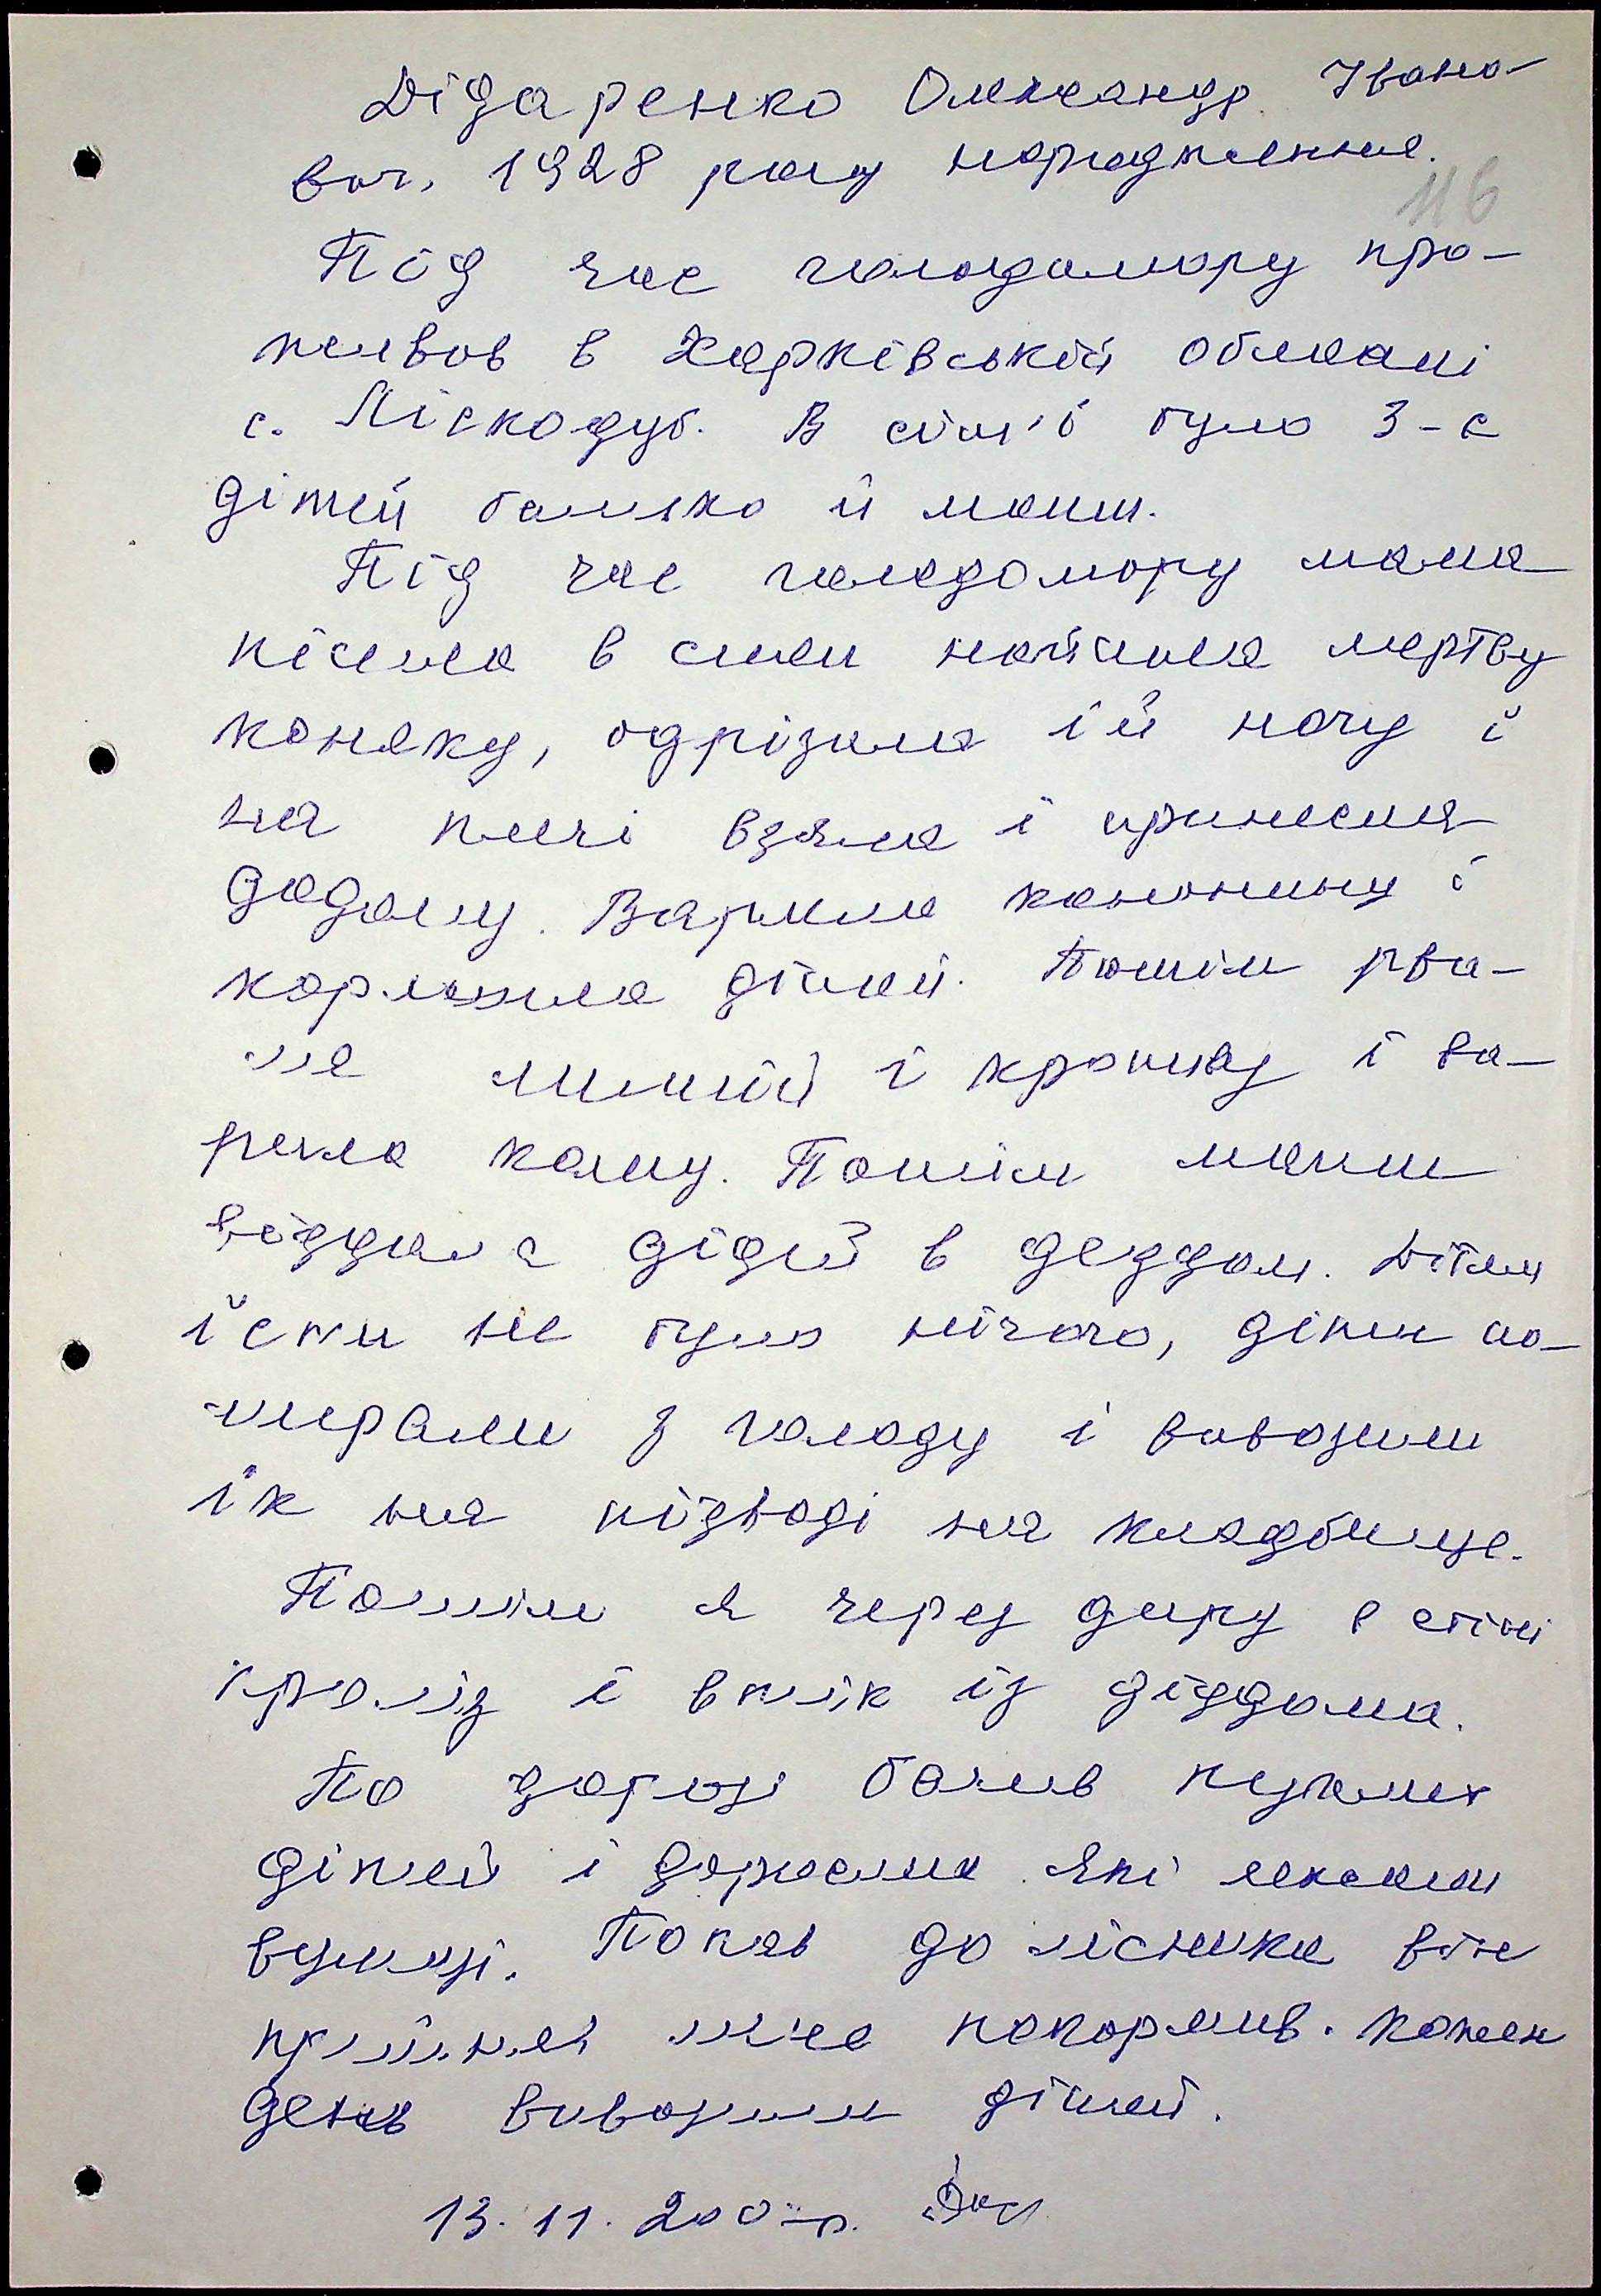 Дідаренко Олександр Івано-
вич, 1928 року народження.
116
Під час голодомору про-
живав в Харківській області
с. Піскодуб. В сім'ї було 3-є
дітей батько й мати.
Під час голодомору мама
пішла в степ найшла мертву
коняку, одрізала їй ногу і
на плечі взяла і принесла
додому. Варила конину і
кормила дітей. Потім рва-
ла липій і кропиву і ва-
рила кашу. Потім мати
віддала дідей в деддом. Дітям
їсти не було нічого, діти по-
мирали з голоду і вивозили
їх на підводі на кладбище.
Потім я через диру в стіні
проліз і втік із діддома.
По дорозі бачив пухлих
дітей і дорослих які лежали
вулиці. Попав до лісника він
прийняв мене покормив. Кожен
день вивозили дітей.
13. 11. 200